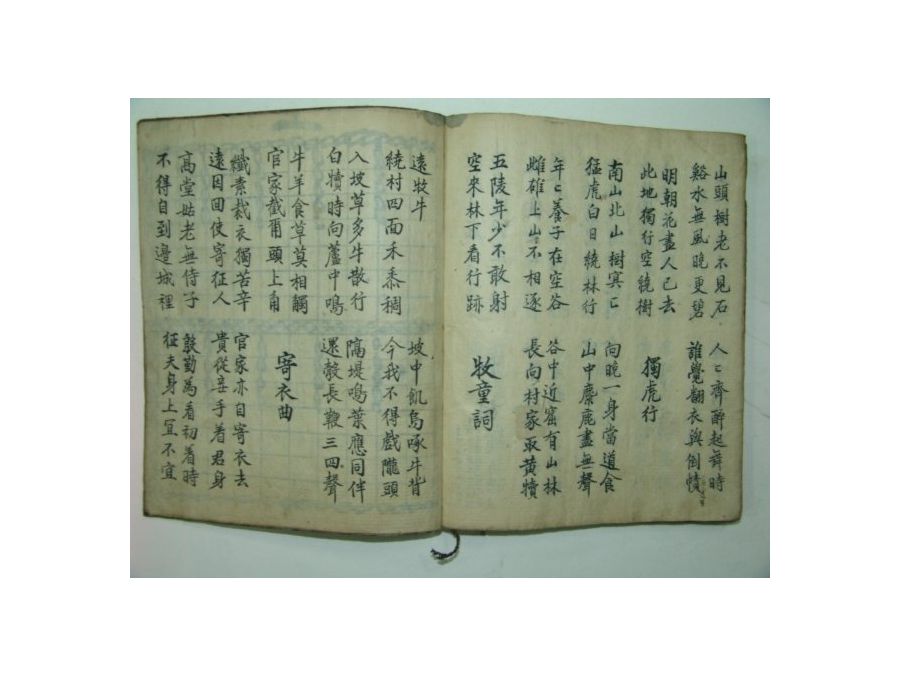 山頭樹老不見石
谿水無風晩更碧
人〻齊醉起舞時
誰覺翻衣與倒幘
明朝花盡人已去
此地獨行空繞樹
獨虎行
南山北山樹冥〻
猛虎白日繞林行
向晚一身當道食
山中麋鹿盡無聲
年〻養子在空谷
雌雄上山不相逐
谷中近窟有山林
長向村家取黃犢
五陵年少不敢射
空來林下看行跡
牧童詞
遠牧牛
繞村四面禾黍稠
坡中飢烏啄牛背
今我不得戲隴頭
入坡草多牛散行
白犢時向蘆中鳴
隔堤鳴葉應同伴
還鼓長鞭三四聲
牛羊食草莫相觸
官家截爾頭上角
寄衣曲
纖素裁衣獨苦辛
遠因回使寄征人
官家亦自寄衣去
貴從妾手着君身
高堂姑老無侍子
不得自到邊城裡
殷勤為看初着時
征夫身上冝不宜